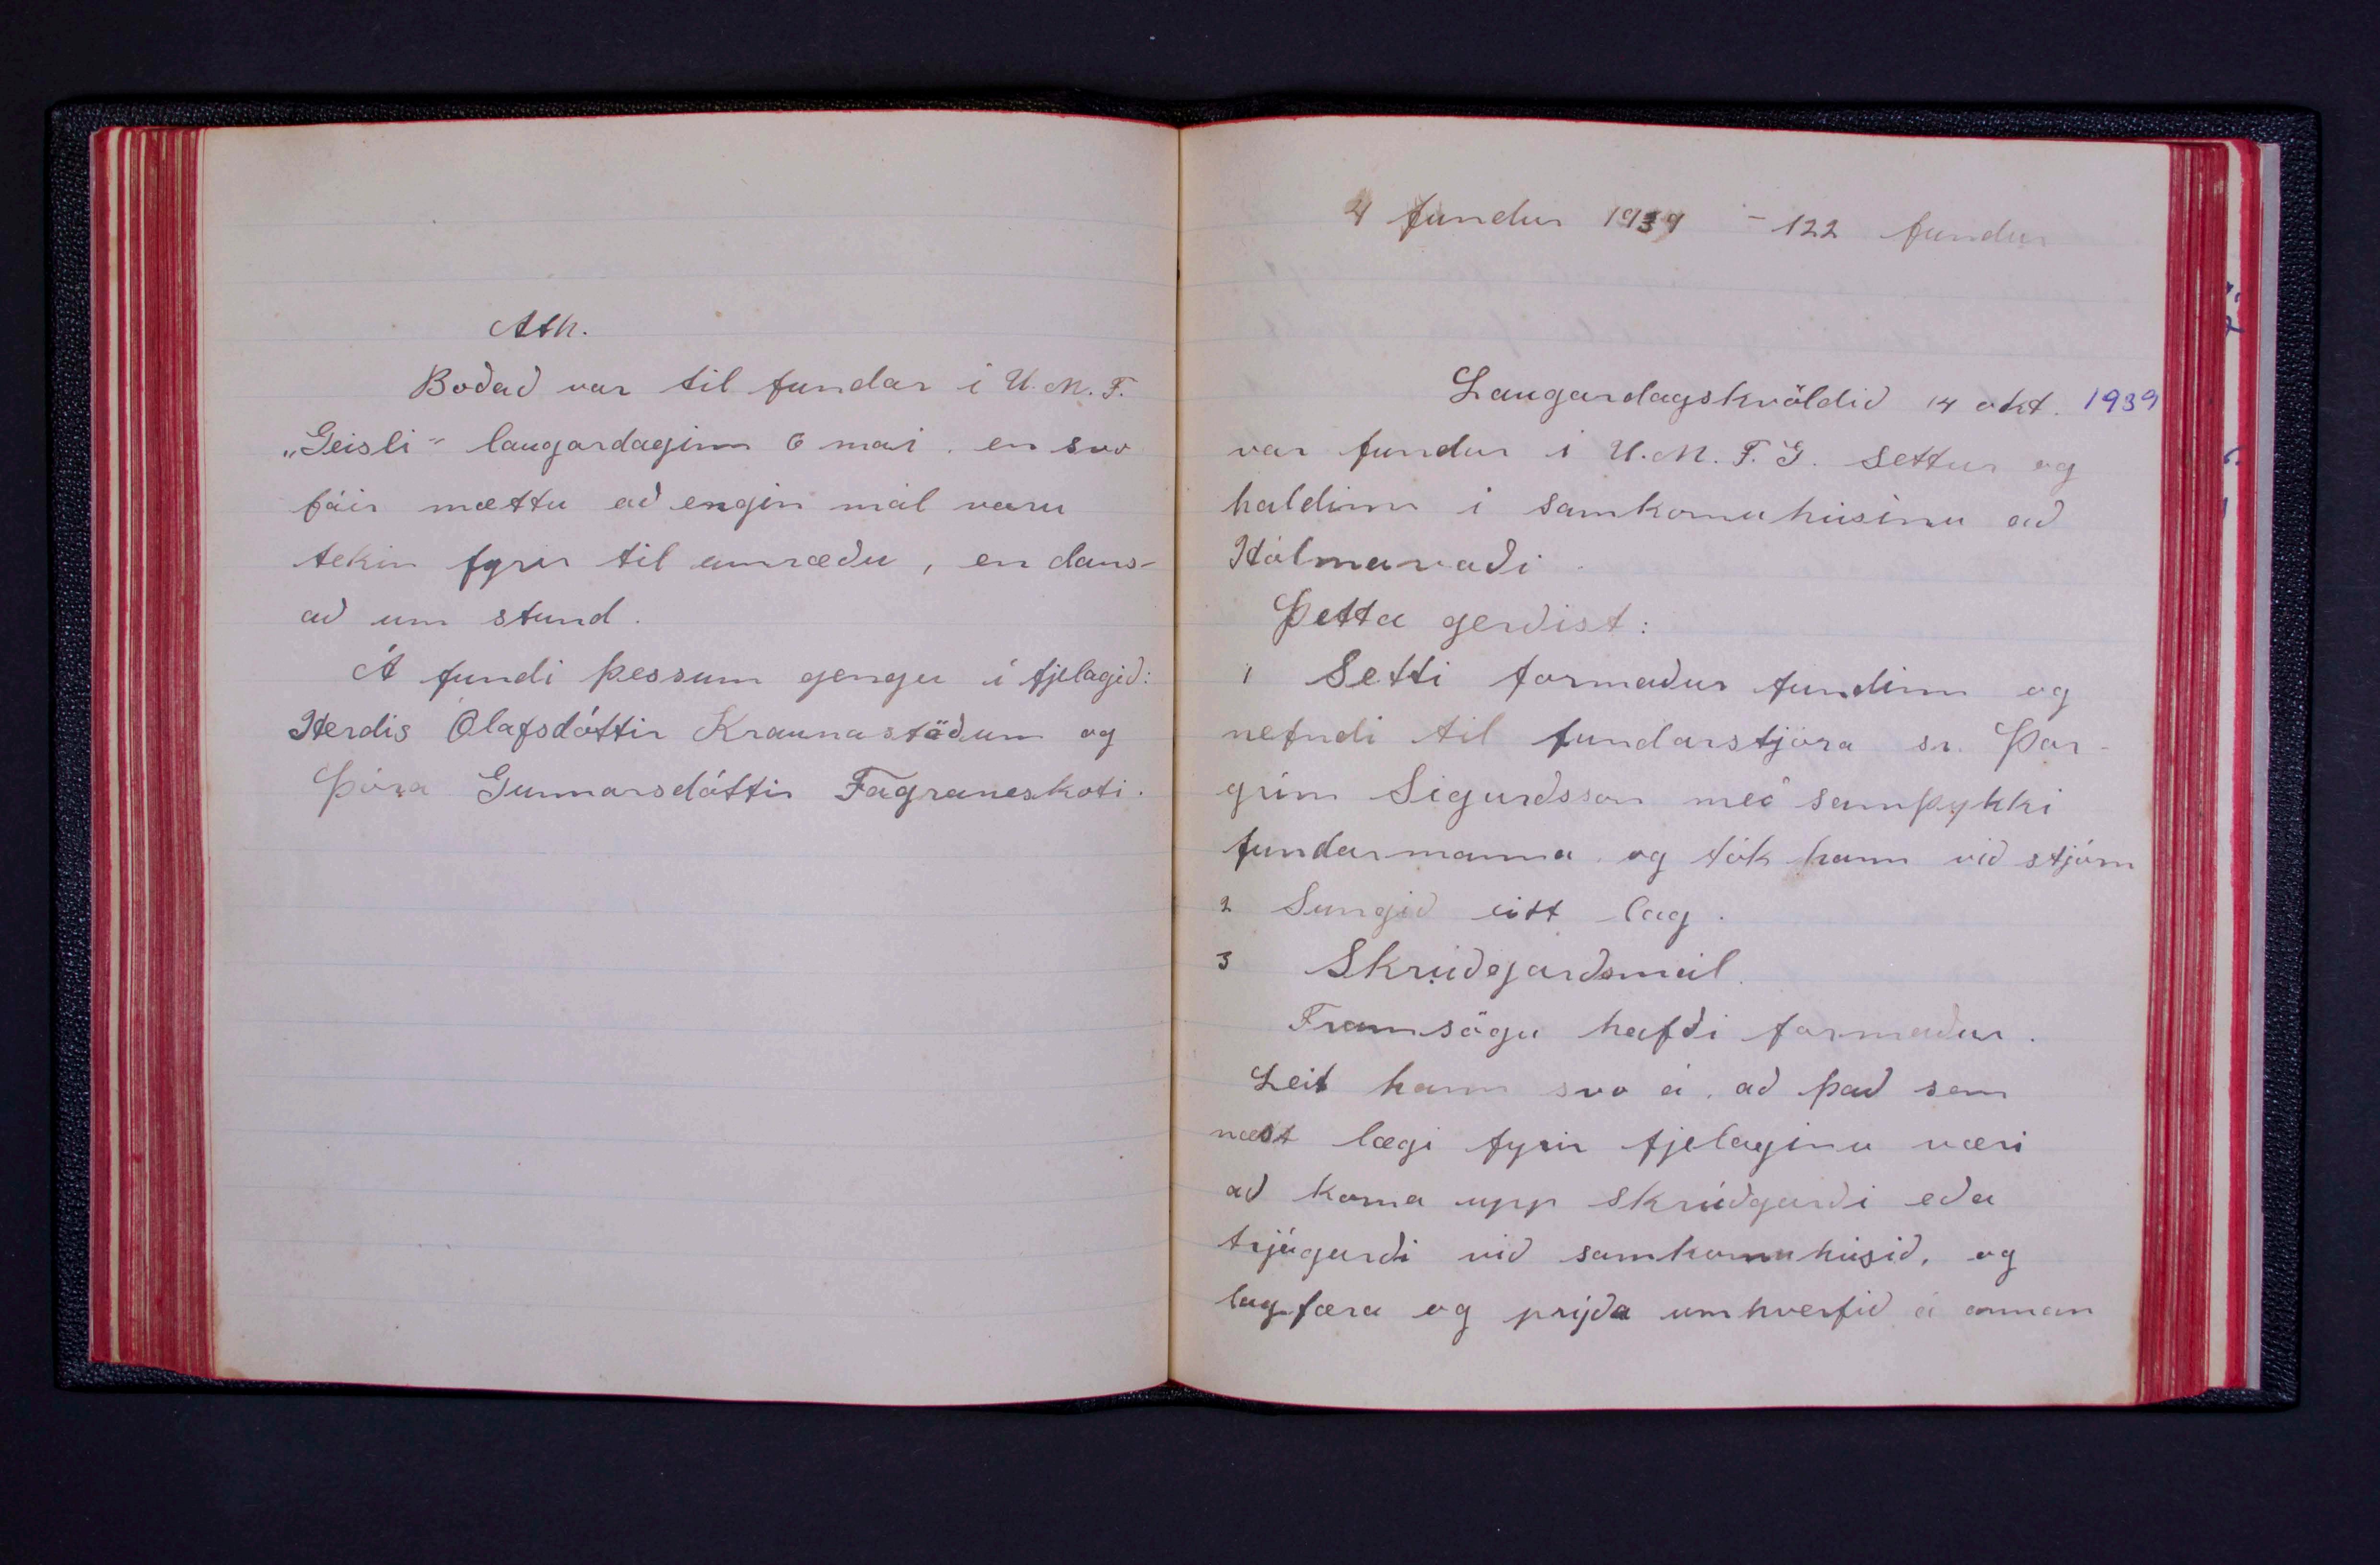 Ath.
Boðað var til fundar í U.M.F.
„Geisli" laugardaginn 6 maí. en svo
fáir mættu að engin mál voru
tekin fyrir til umræðu, en dans-
að um stund.
Á fundi þessum gengu í fjelagið:
Herdís Ólafsdóttir Kraunastöðum og
Þóra Gunnarsdóttir Fagraneskoti.
4 fundur 1939 - 122 fundur
Laugardagskvöldið 14 okt. 1939
var fundur í U.M.F.G. settur og
haldinn í samkomuhúsinu að
Hólmavaði.
Þetta gerðist:
1 Setti formaður fundinn og
nefndi til fundarstjóra sr. Þor-
grím Sigurðsson með samþykki
fundarmanna og tók hann við stjórn
2 Sungið eitt lag.
3 Skrúðgarðsmál.
Framsögu hafði formaður.
Leit hann svo á, að það sem
næst lægi fyrir fjelaginu væri
að koma upp skrúðgarði eða
trjágarði við samkomuhúsið, og
lagfæra og prýða umhverfið á annan